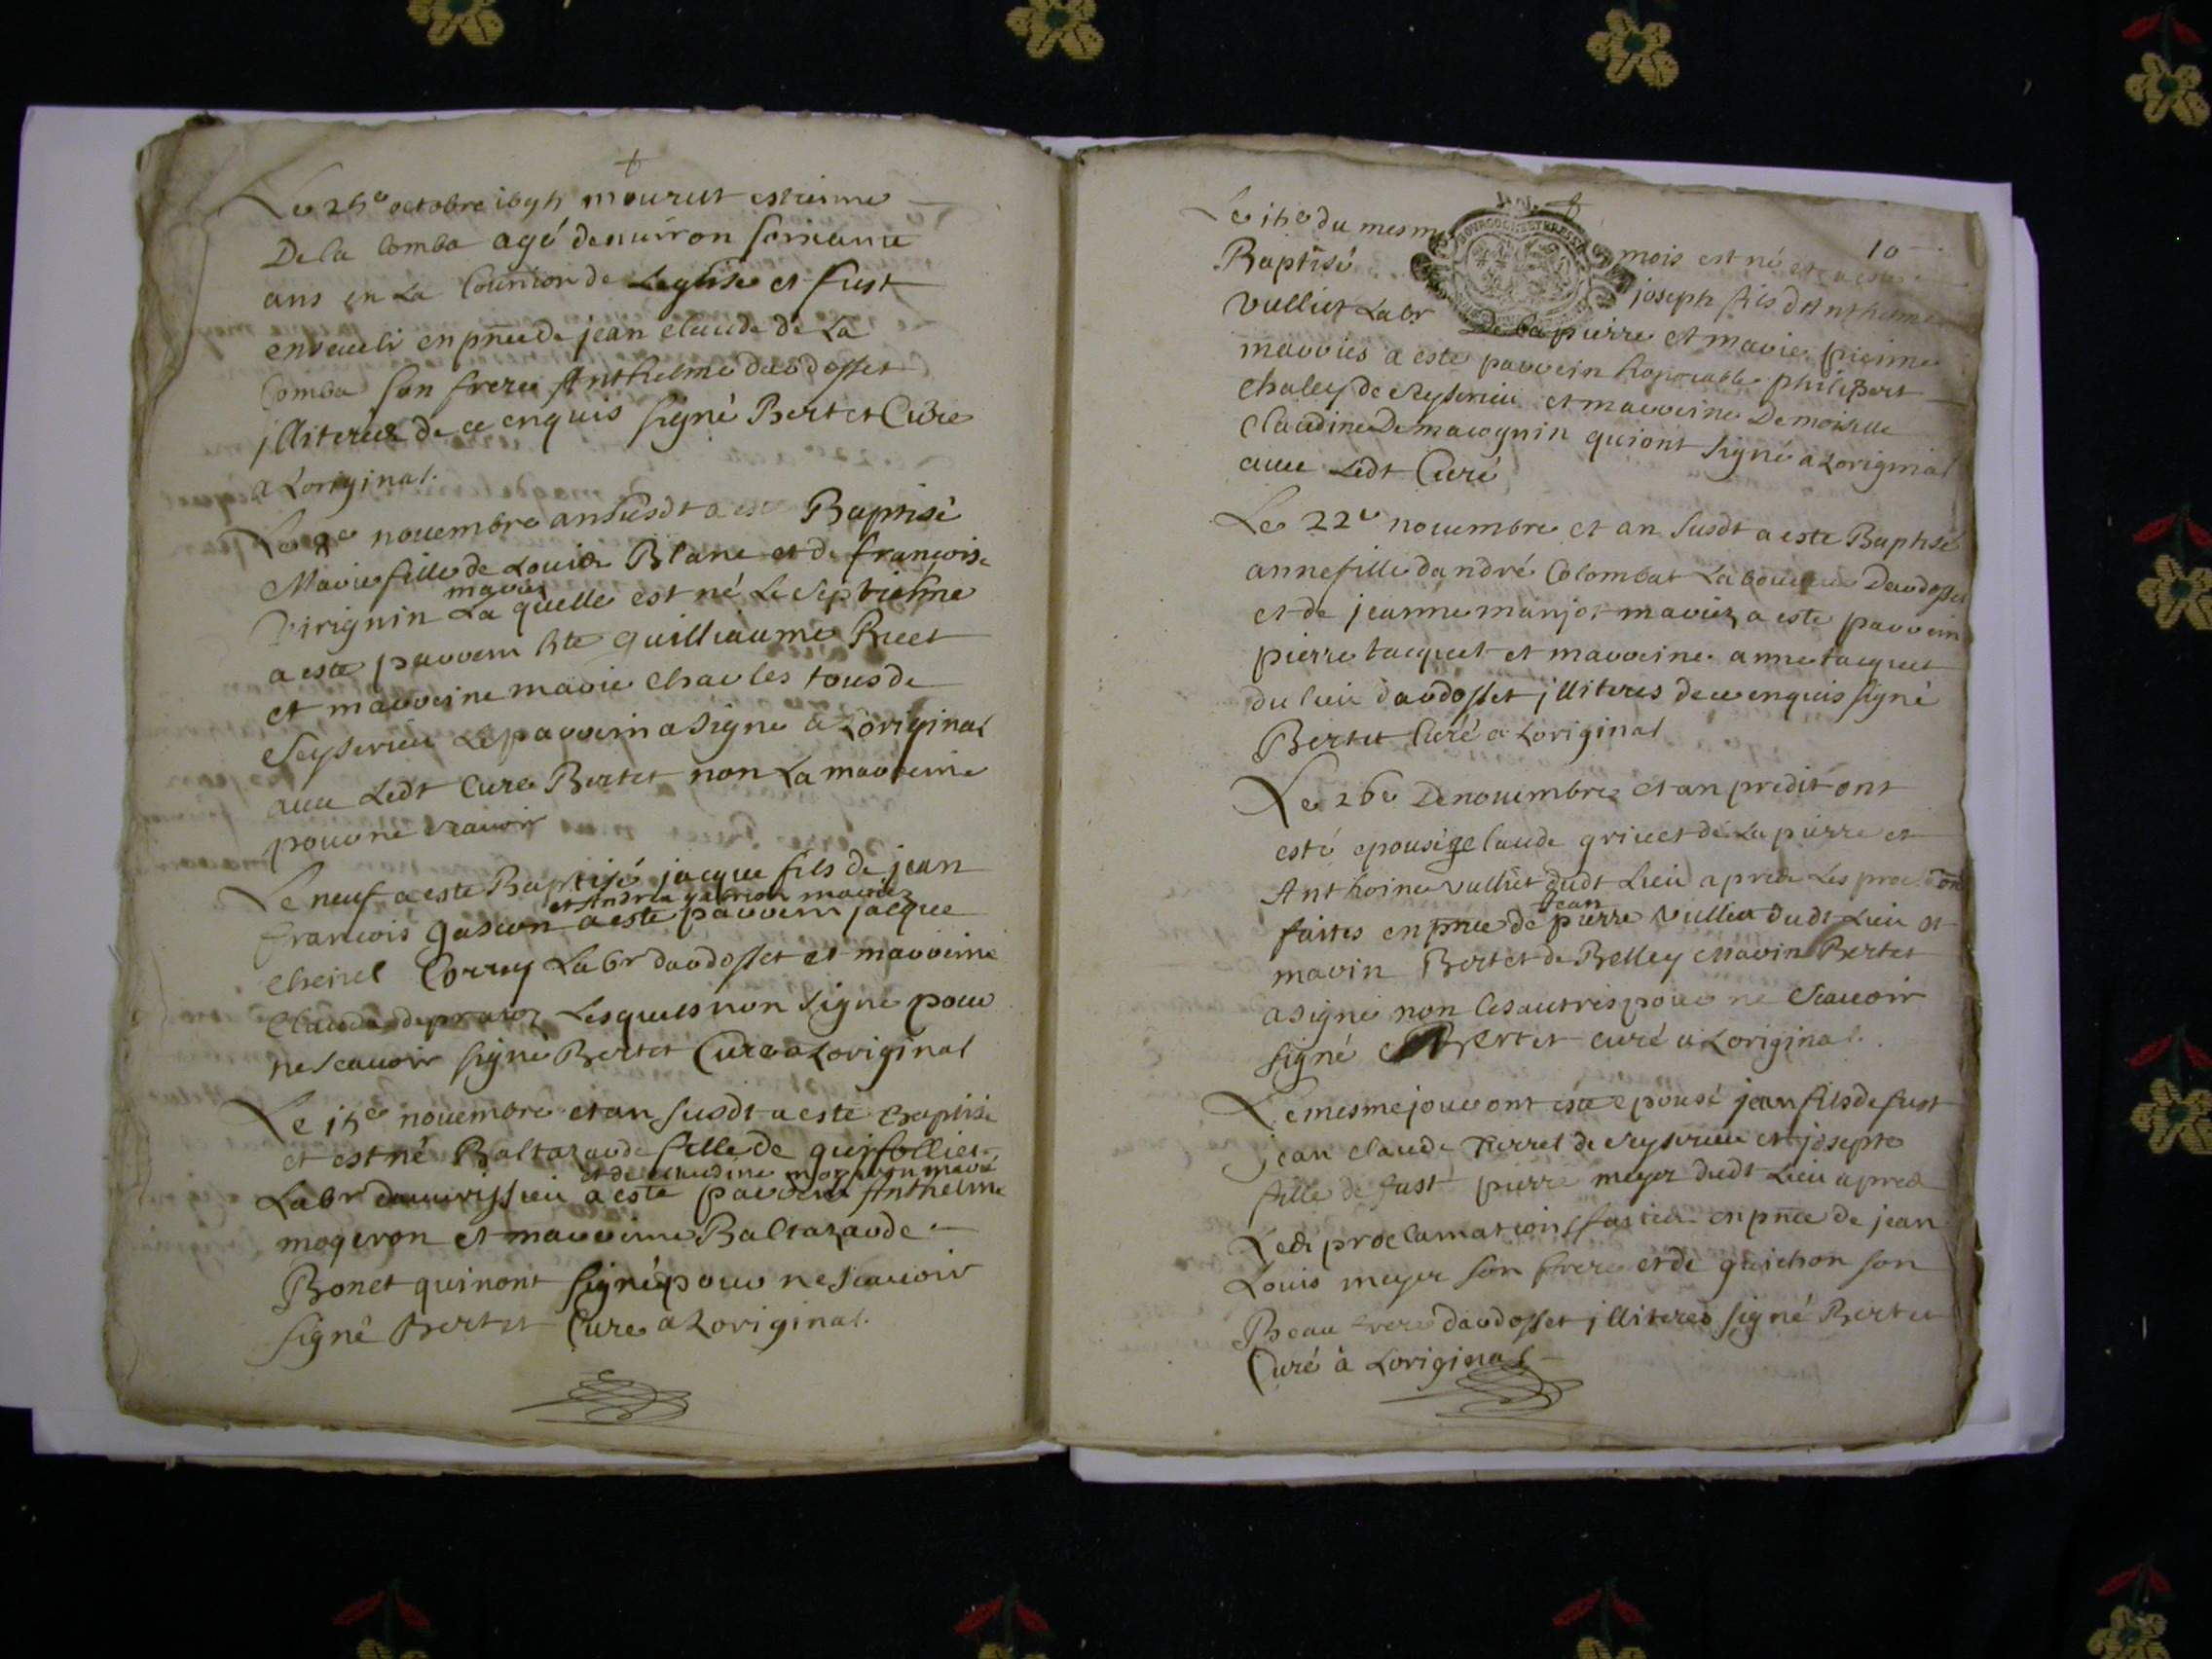 Le 25e octobre 1695 mourut estienne
De la Comba agé denuiron soixante
ans en La Coũnion de Leglise et fust
enseueli en pñce de jean claude de La
Comba son frere Anthelme daudosset
jlliterez de ce enquis signé Bertet Cure
a Loriginal.
Le 8e nouembre an susdt a este Baptisé
Marie fille de Louis Blanc et de francoise
Virignin mariez La quelle est né Le septiesme
a esté parrein hte guilliaume Ricet
et marreine marie charles tous de
Seyserieu Le parrein a signe a Loriginal
auec Ledt Cure Bertet non La marreine
pour ne scauoir
Le neuf a este Baptisé jacque fils de jean
et Andrea gabrion mariez
francois gascon a este parrein jacque
chenel Corruy Labr daudosset et marreine
Clauda depraz Lesquels non signe pour
ne scauoir signé Bertet Cure a Loriginal
Le 15e nouembre et an susdt a este Baptisé
et est né Baltazarde fille de guy follier
et de claudine mogeron marié
Labr dauurissieu a este parrein Anthelme
mogeron et marreine Baltazarde
Bonet qui nont signé pour ne scauoir
signé Bertet Cure a Loriginal.
10
Le 15e du mesme mois est né et a esté
Baptisé joseph fils dAnthelme
Vulliet Labr De La pierre et marie pierine
mariés a esté parrein honorable philibert
Chaley de Seyserieu et marreine Demoiselle
Claudine Demarognin qui ont signé a Loriginal
auec Ledt Curé
Le 22e nouembre et an susdt a este Baptisé
anne fille dandré Colombat Laboureur Daudosset
et de jeanne manjot mariez a este parrein
pierre tacquet et marreine anne tacquet
du lieu daudosset jlliteres de ce enquis signé
Bertet Curé a Loriginal
Le 26e De nouembre et an predit ont
esté epousé claude griuet de La pierre et
Anthoine vulliet dudt Lieu apres Les procl̃aõns
faites en pñce de jean pierre vulliet dudt Lieu et
marin Bertet de Belley marin Bertet
a signé non les autres pour ne Scauoir
signé Bertet curé a Loriginal.
Le mesme jour ont esté epousé jean fils de fust
jean claude Perret de Seyserieu et josepte
fille de fust pierre meyer dudt Lieu apres
Les proclamations faites en pñce de jean
Louis meyer son frere et de guichon son
Beau frere daudosset jlliteres signé Bertet
Curé à Loriginal